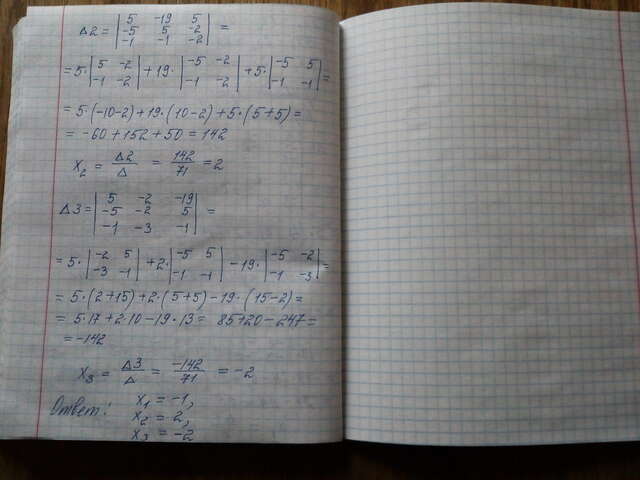 Δ2 = | 5 -19 5 |
| -5 5 -2 | =
| -1 -1 -2 |
= 5· | 5 -2 | + 19· | -5 -2 | + 5· | -5 5 | =
| -1 -2 | | -1 -2 | | -1 -1 |
= 5·(-10-2)+19·(10-2)+5·(5+5)=
= -60+152+50=142
X₂ = Δ2/Δ = 142/71 = 2
Δ3 = | 5 -2 -19 |
| -5 -2 5 | =
| -1 -3 -1 |
= 5· | -2 5 | + 2· | -5 5 | - 19· | -5 -2 | =
| -3 -1 | | -1 -1 | | -1 -3 |
= 5·(2+15)+2·(5+5)-19·(15-2)=
= 5·17+2·10-19·13= 85+20-247=
= -142
X₃ = Δ3/Δ = -142/71 = -2
Ответ: X₁ = -1,
X₂ = 2,
X₃ = -2